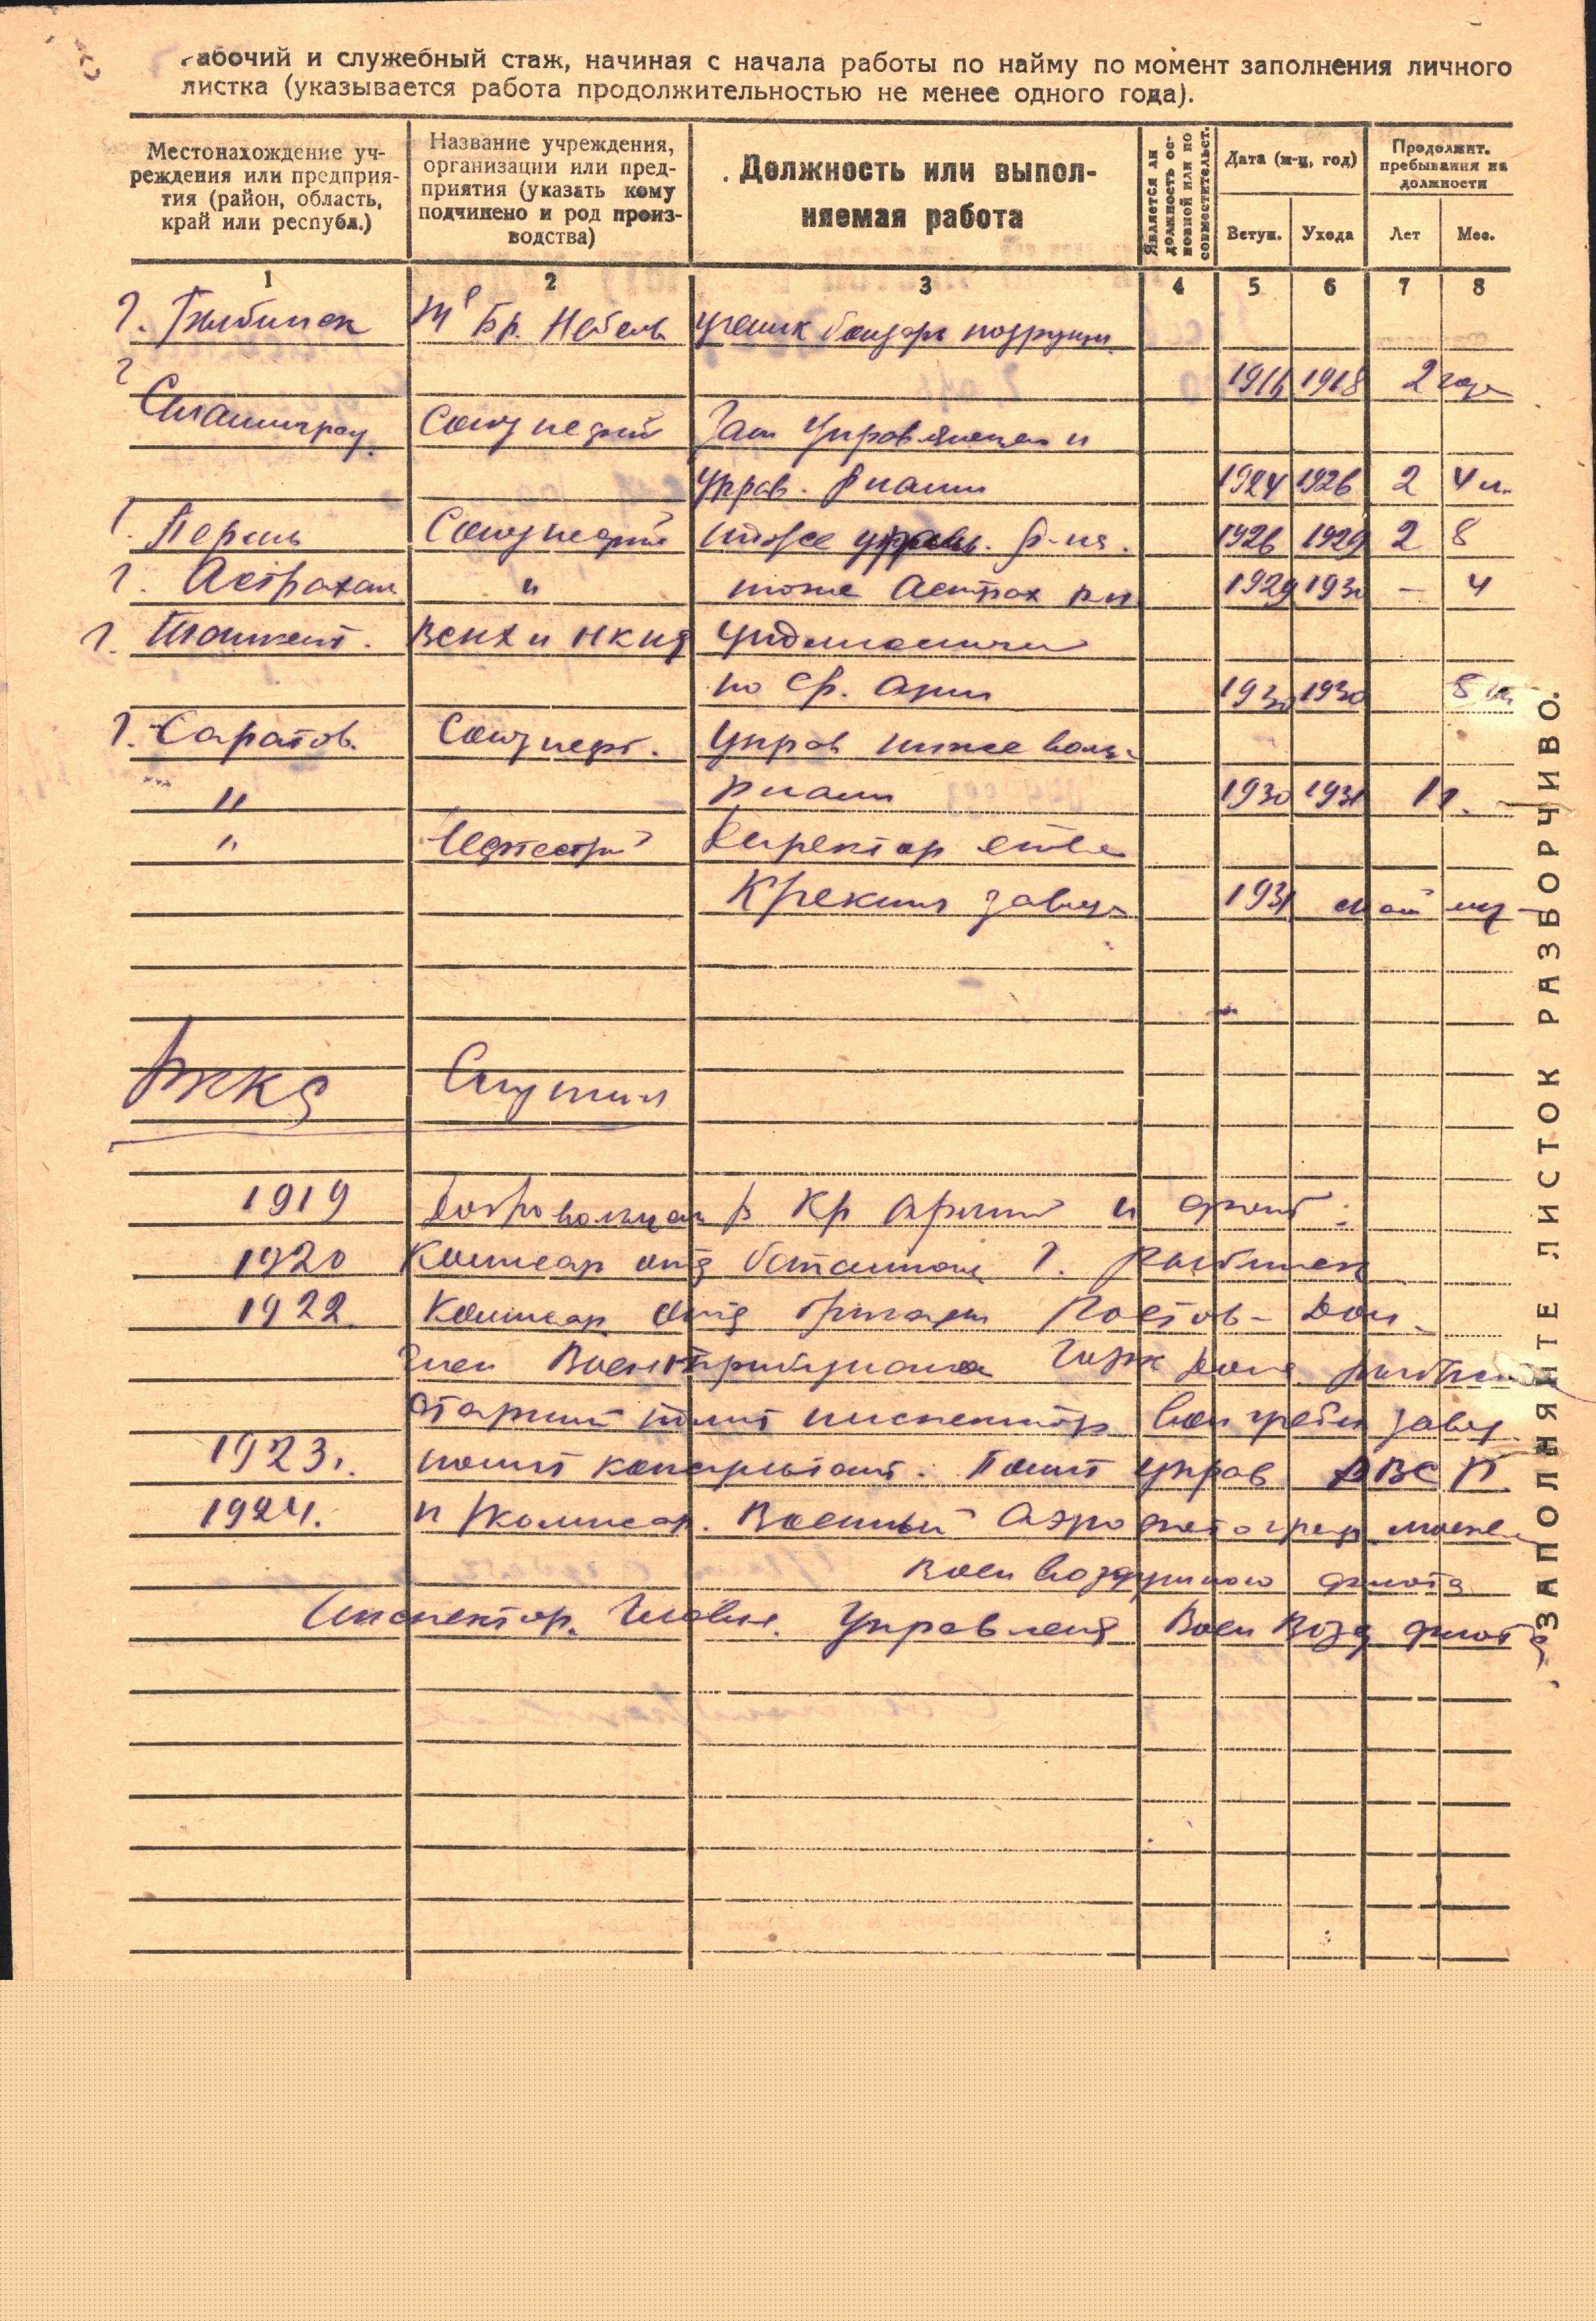 рабочий и служебный стаж, начиная с начала работы по найму по момент заполнения личного
листка (указывается работа продолжительностью не менее одного года).
Местонахождение уч-
реждения или предприя-
тия (район, область,
край или республ.)
Название учреждения,
организации или пред-
приятия (указать кому
подчинено и род произ-
водства)
Должность или выпол-
няемая работа
Является ли
должность ос-
новной или по
совместительст.
Дата (м-ц, год)
Вступ. Ухода
Продолжит.
пребывания на
должности
Лет Мес.
1 2 3 4 5 6 7 8
г. Рыбинск Бр. Нобель ученик бондаря
1916 1918 2 года
г
Сталинград. Союзнефть Зам Управляющего и
Управ. 1924 1926 2 4 м.
г. Пермь Союзнефть тоже управ. р-на. 1926 1929 2 8
г. Астрахан " тоже Астрах 1929 1930 – 4
г. Ташкент. ВСНХ и
по Ср. Азии 1930 1930 5 м
г. Саратов. Союзнефт. Управ Ниже волж.
" 1930 1931 1 г.
" Директор
Крекинг завода 1931
РККА Служил
1919 Добровольцем в Кр Армий и флот.
1920 Комиссар отд баталиона г. Рыбинск
1922. Комиссар отд бригады Ростов-Дон.
Член Военнтрибунала
Старший полит инспектор
1923 г. полит консультант. Полит управ
1924. и комиссар. Военный Аэро
Воен воздушного флота
Инспектор. Главн. Управлен Воен Возд флот
ЗАПОЛНЯЙТЕ ЛИСТОК РАЗБОРЧИВО.